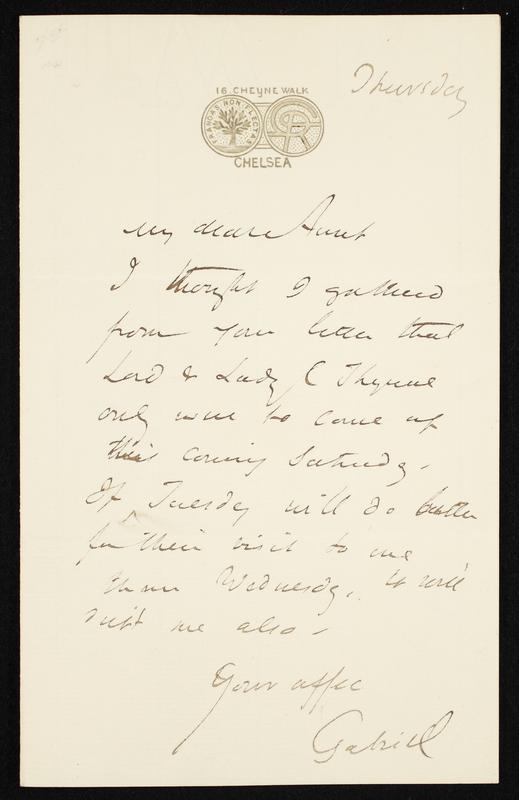 Thursday
16. CHEYNE WALK
FRANGAS NON FLECTAS
GCR
CHELSEA
My dear Aunt
I thought I gathered
from your letter that
Lord & Lady C Thynne
only were to come up
this coming Saturday.
If Tuesday will do better
for their visit to me
than Wednesday, it will
suit me also.
Your affec
Gabriel